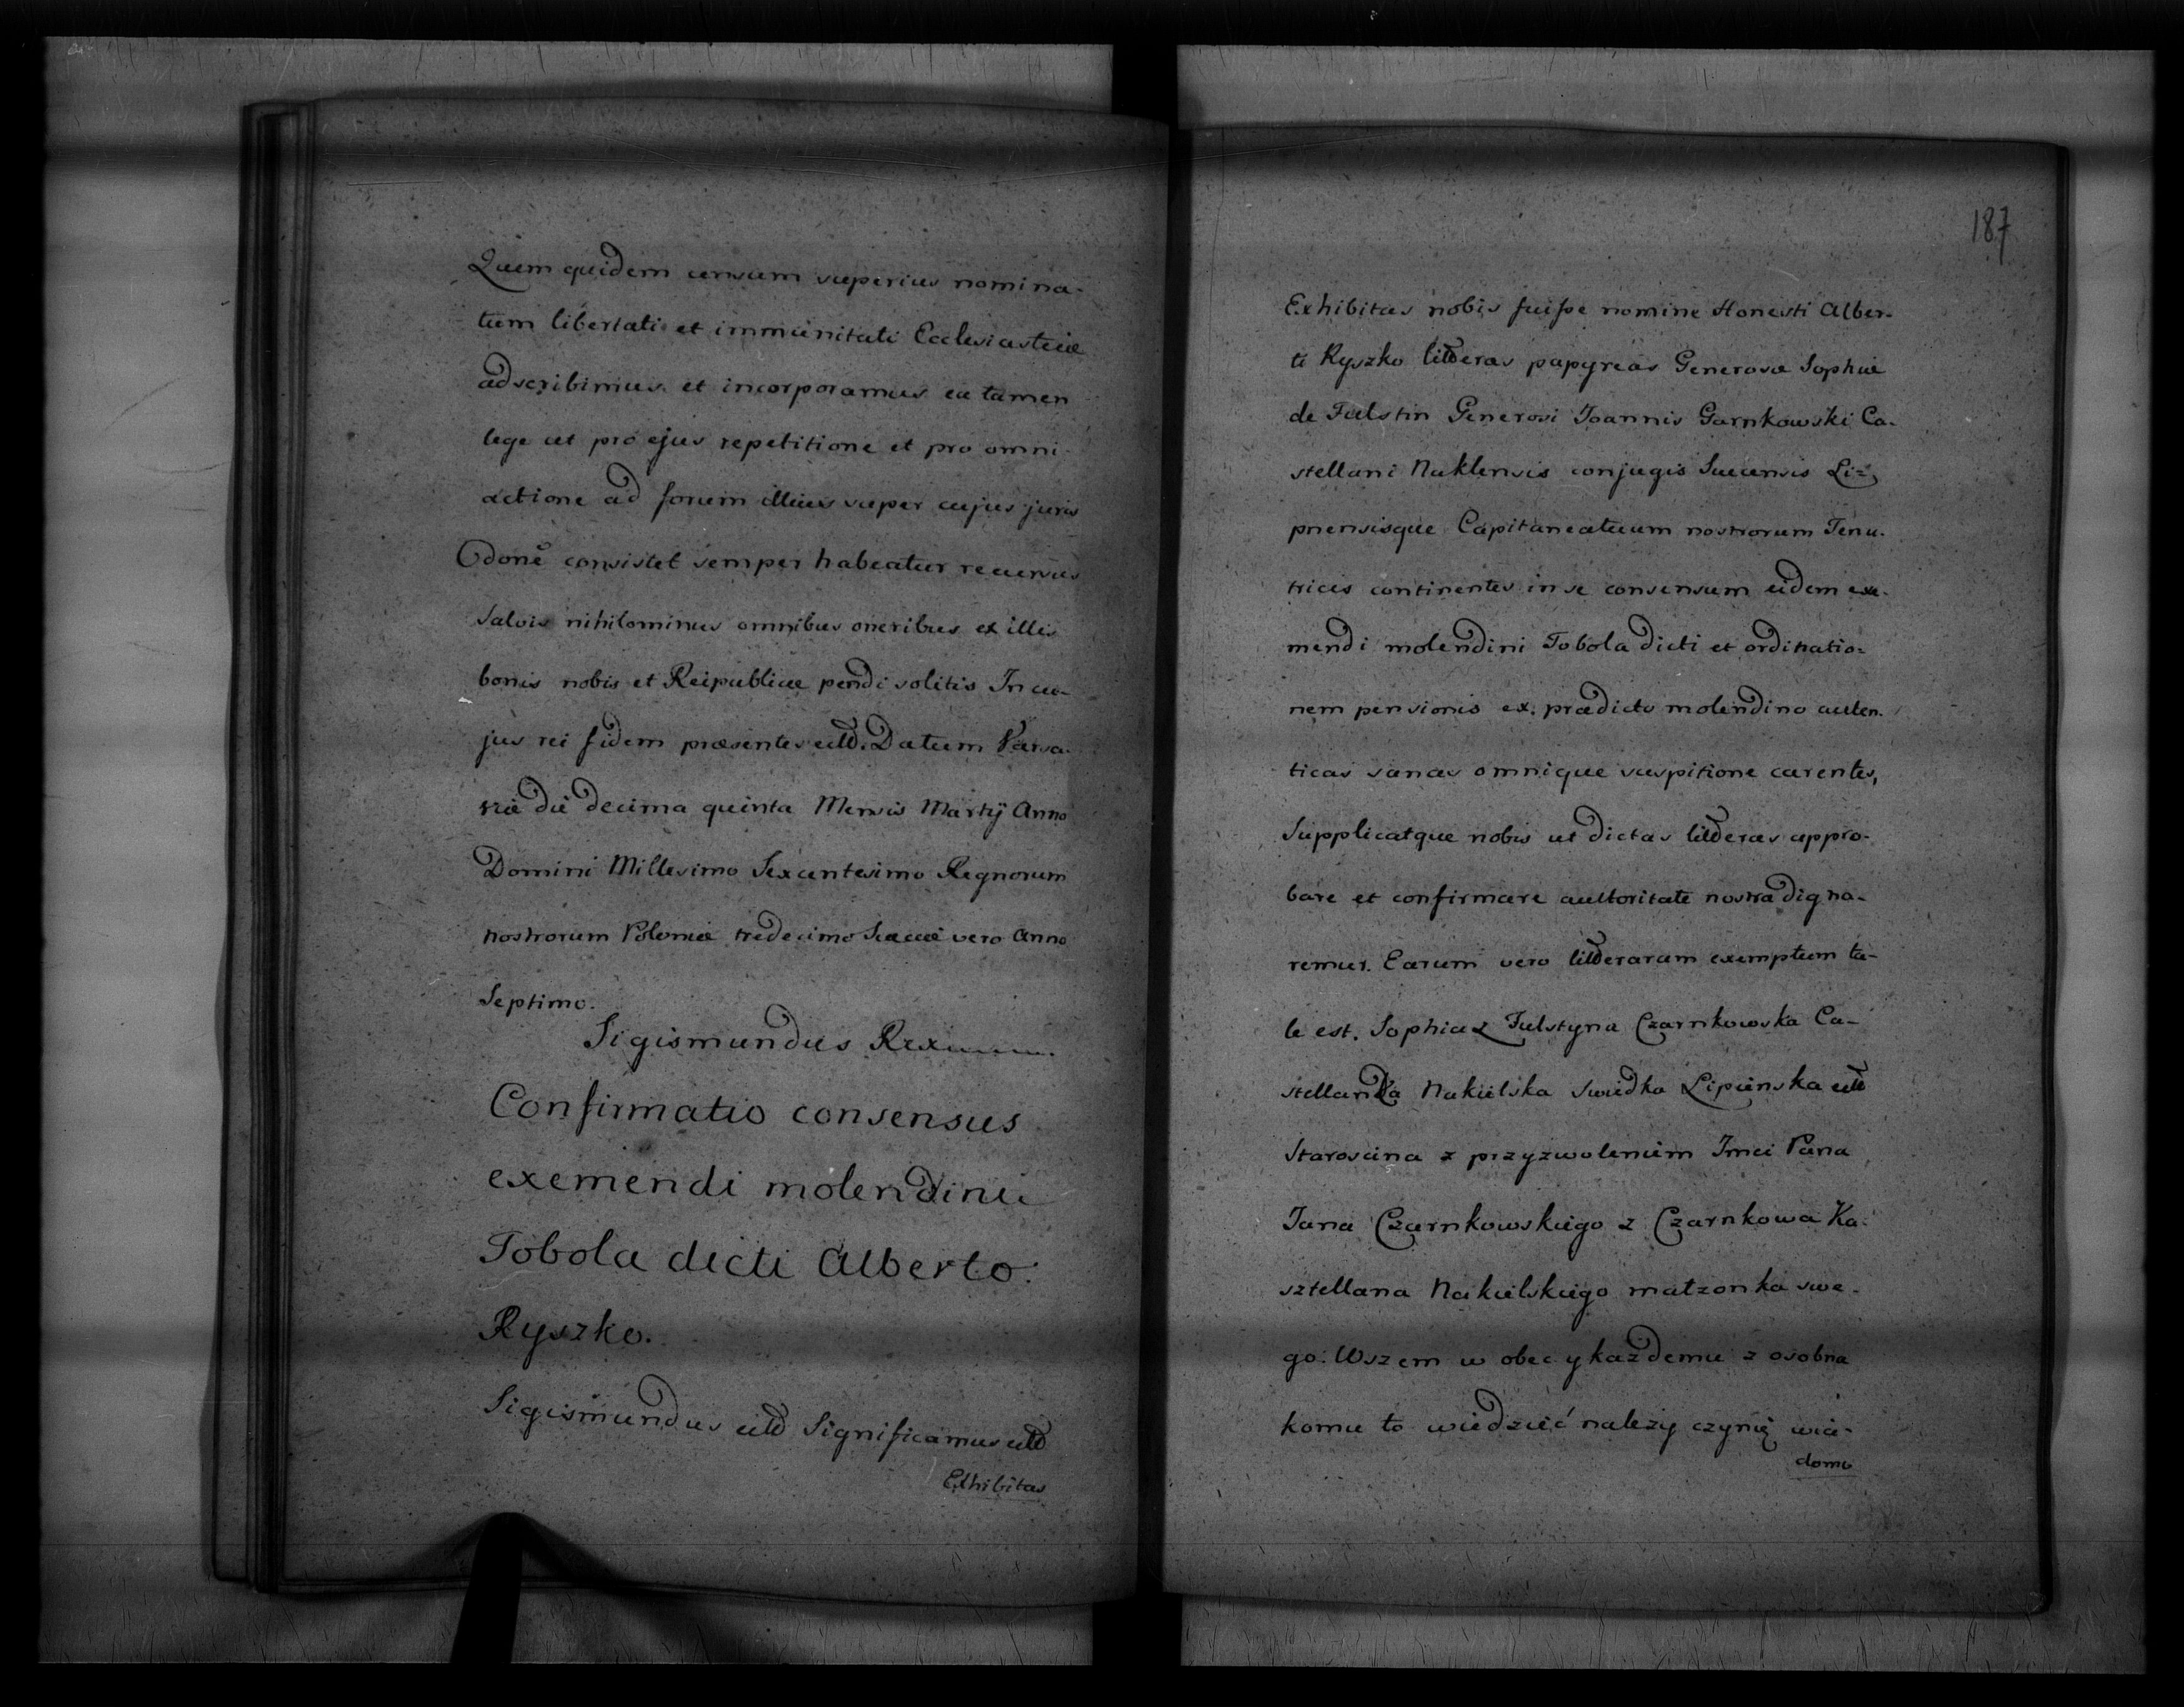 Quem quidem censum superius nomina-
tum libertati et immunitati Ecclesiasticæ
adscribimus et incorporamus ea tamen
lege ut pro ejus repetitione et pro omni
actione ad forum illius super cujus juris
done consistet semper habeatur recursus
Salvis nihilominus omnibus oneribus ex illis
bonis nobis et Reipublicæ pendi solitis In cu-
jus rei fidem præsentes ettd. Datum Varsa-
viæ die decima quinta Mensis Martij Anno
Domini Millesimo Sexcentesimo Regnorum
nostrorum Poloniæ tredecimo Sueciæ vero Anno
Septimo.
Sigismundus Rex
Confirmatio consensus
exemendi molendini
Tobola dicti Alberto
Ryszko.
Sigismundus ettd Significamus ettd
Exhibitas
187
Exhibitas nobis fuisse nomine Honesti Alber-
ti Ryszko litteras papyreas Generosæ Sophiæ
de Fulstin Generosi Joannis Garnkowski Ca-
stellani Naklensis conjugis Sucensis Li-
pnensisque Capitaneatuum nostrorum Tenu-
tricis continentes in se consensum eidem exe-
mendi molendini Tobola dicti et ordinatio-
nem pensionis ex prædicto molendino auten-
ticas sanas omnique suspitione carentes,
Supplicatque nobis ut dictas litteras appro-
bare et confirmare auttoritate nostra digna-
remur. Earum vero litterarum exemptum ta-
le est. Sophia z Fulstyna Czarnkowska Ca-
stellanka Nakielska Swiedka Lipienska ettd
Staroscina z przyzwoleniem Jmci Pana
Jana Czarnkowskiego z Czarnkowa Ka-
sztellana Nakielskiego małzonka swe-
go. Wszem w obec y każdemu z osobna
komu to wiedzieć należy czynię wia-
domo